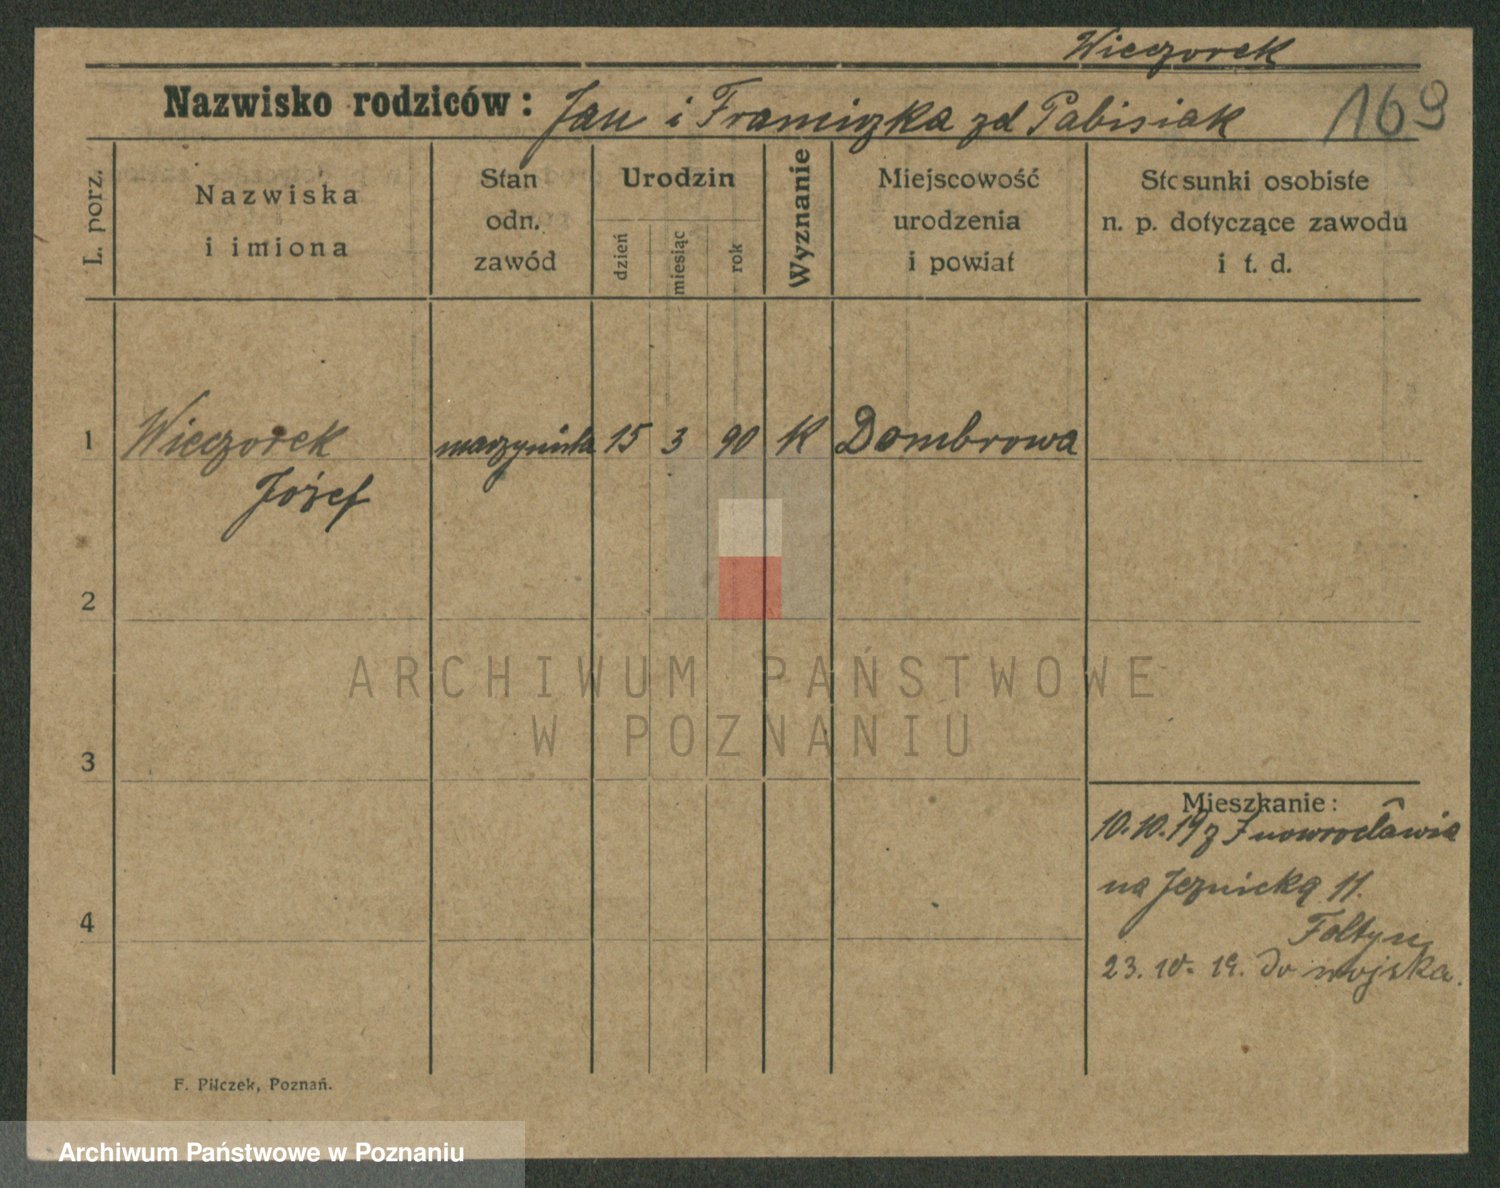 Wieczorek
Nazwisko rodziców: Jan i Franciszka zd Pabisiak 169
L. porz.
Nazwiska
i imiona
Stan
odn.
zawód
Urodzin
dzień
miesiąc
rok
Wyznanie
Miejscowość
urodzenia
i powiat
Stosunki osobiste
n. p. dotyczące zawodu
i t. d.
1 Wieczorek maszynista 15 3 90 K Dombrowa
Józef
2
3
4
ARCHIWUM PAŃSTWOWE
W POZNANIU
Mieszkanie:
10.10.19 z Inowrocławia
na Jeznicką 11.
Foltyn
23.10.19. do wojska.
F. Pilczek, Poznań.
Archiwum Państwowe w Poznaniu